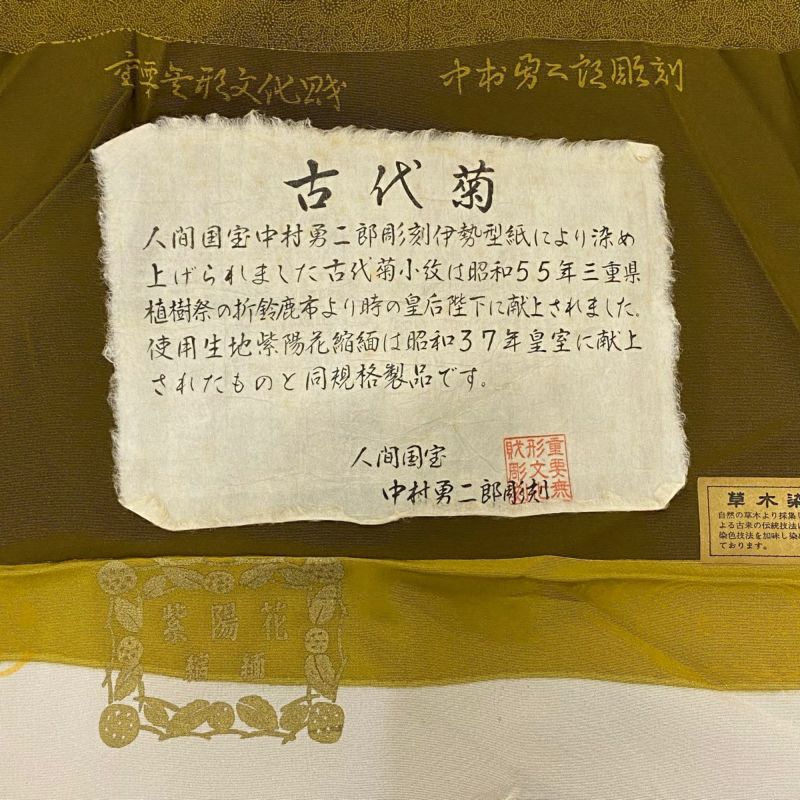 重要無形文化財
中村勇二郎彫刻
古代菊
人間国宝中村勇二郎彫刻伊勢型紙により染め
上げられました古代菊小紋は昭和55年三重県
植樹祭の折鈴鹿市より時の皇后陛下に献上されました。
使用生地紫陽花縮緬は昭和37年皇室に献上
されたものと同規格製品です。
人間国宝
中村勇二郎彫刻
重要無
形文刻
財彫
草木染
自然の草木より採集し
よる古来の伝統技法に
染色技法を加味し染め
ております。
紫陽花
縮緬